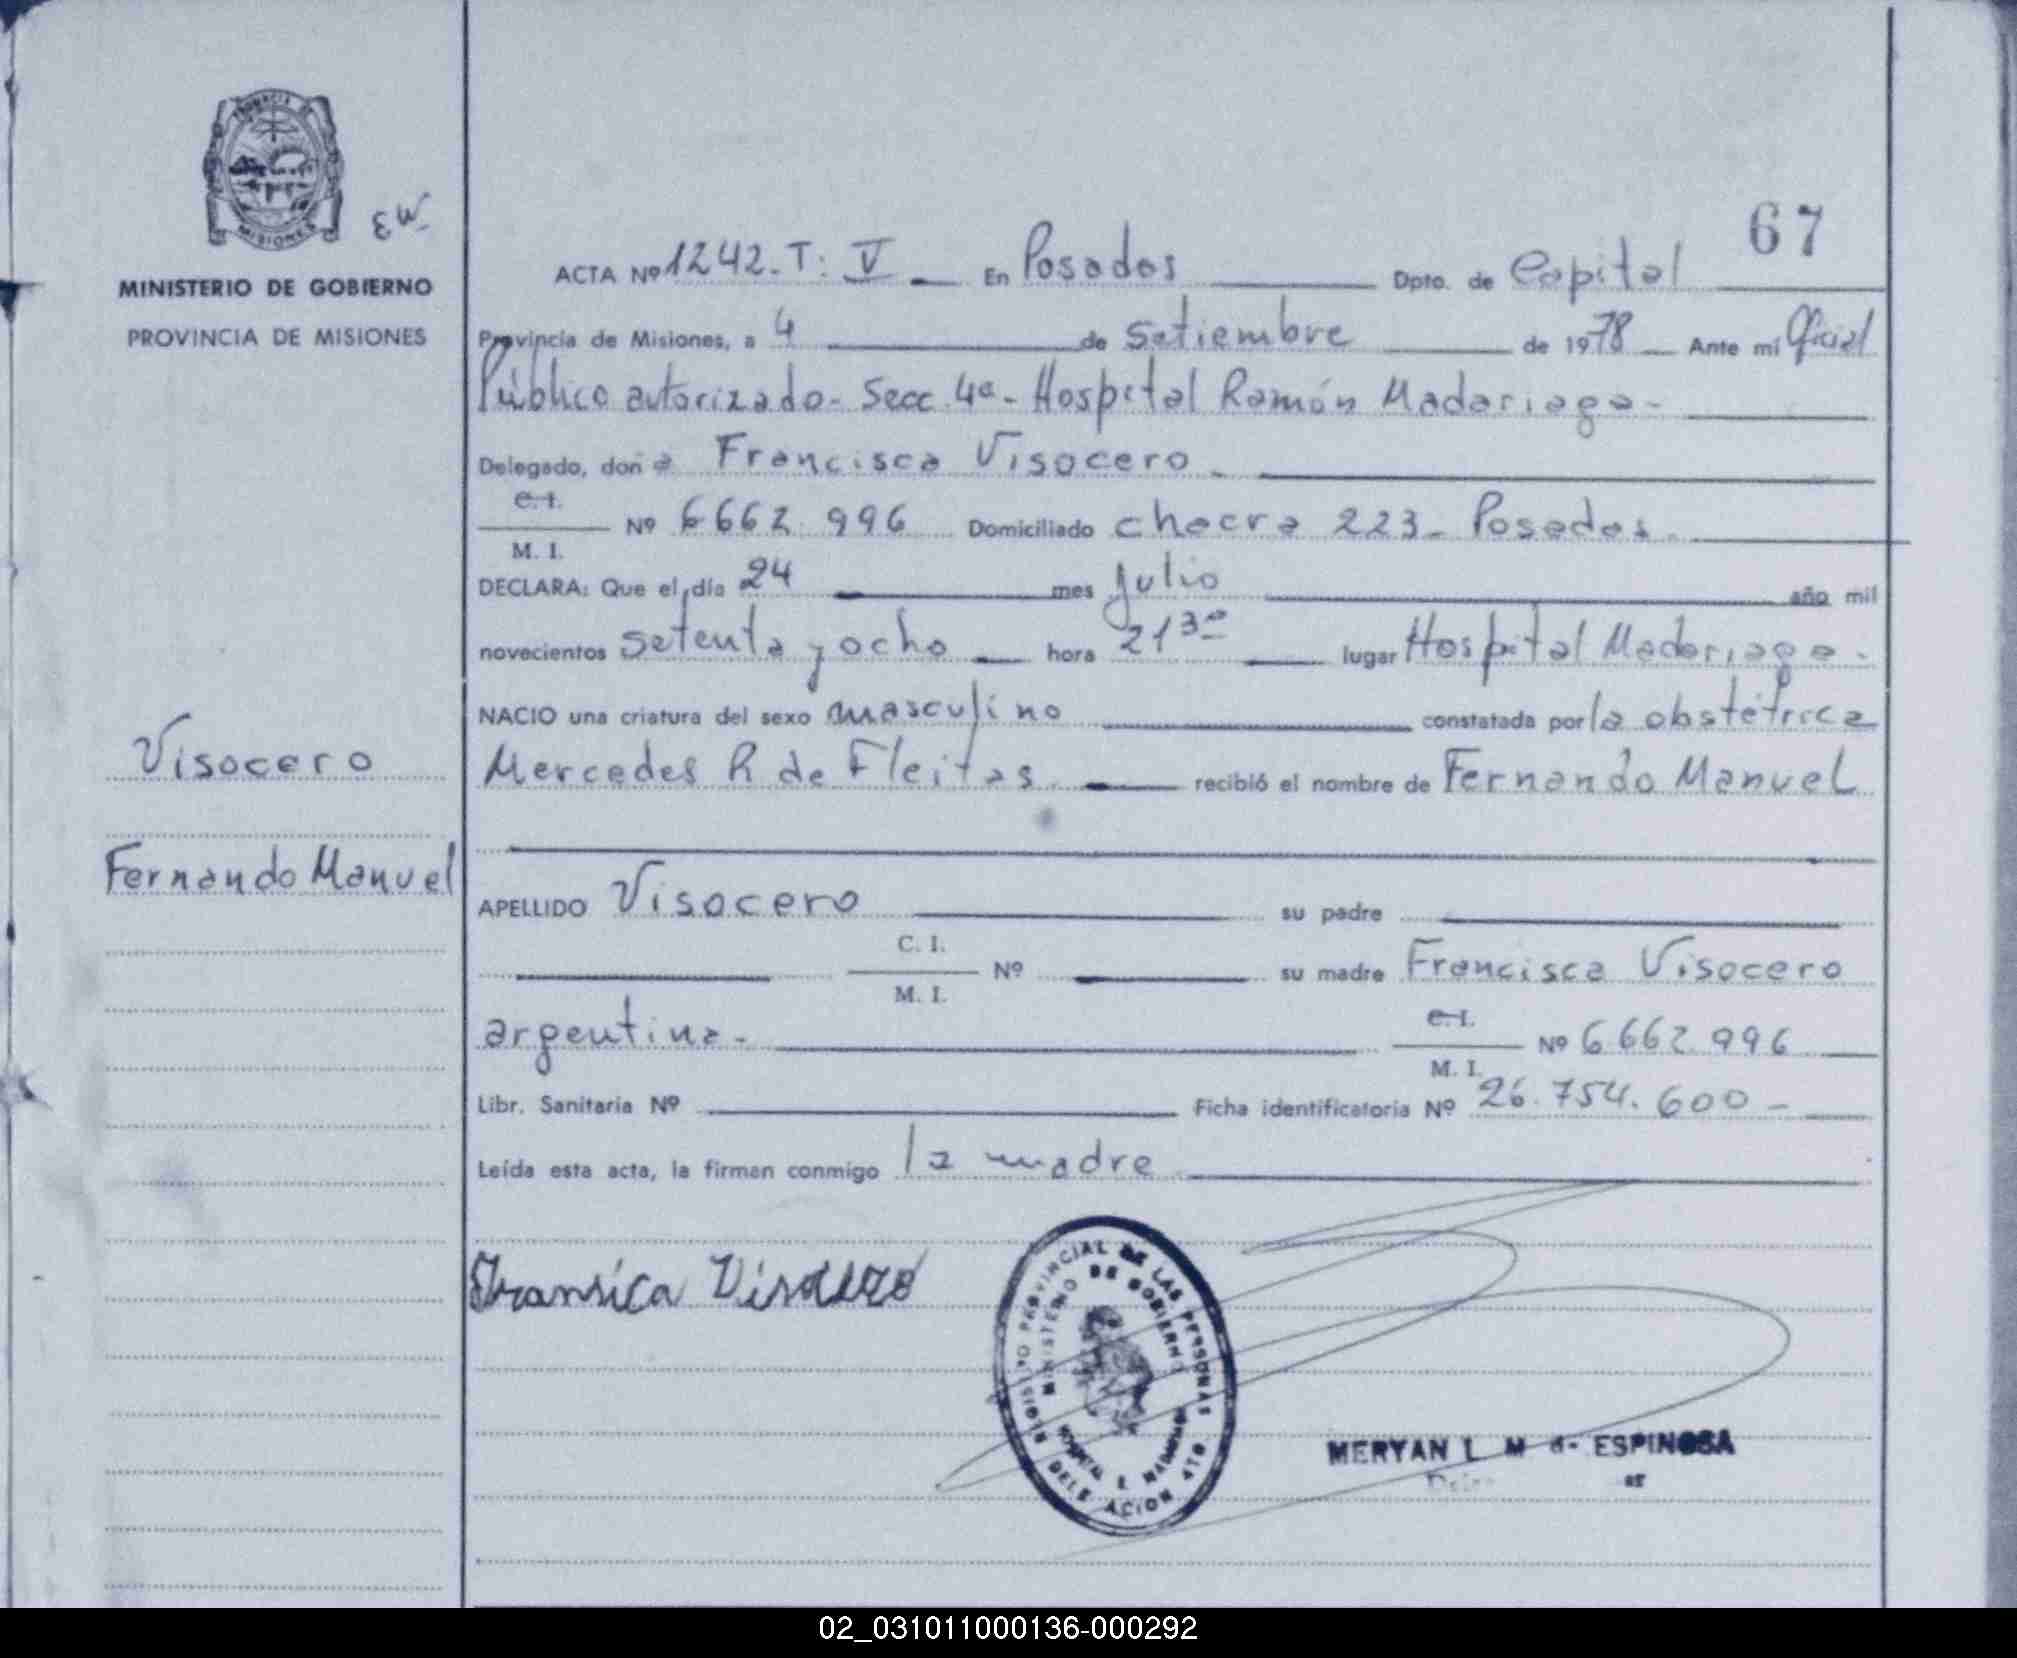 PROVINCIA DE
MISIONES
EW
MINISTERIO DE GOBIERNO
PROVINCIA DE MISIONES
67
ACTA Nº 1242 - T: V — En Posadas Dpto. de Capital
Provincia de Misiones, a 4 de setiembre de 1978 Ante mí Oficial
Público autorizado - Secc. 4a - Hospital Ramón Madariaga -
Delegado, don a Francisca Visocero -
C. I.
Nº 6662 996 Domiciliado chacra 223 - Posadas.
M. I.
DECLARA: Que el día 24 mes julio año mil
novecientos setenta y ocho hora 21 30 lugar Hospital Madariaga -
NACIO una criatura del sexo masculino constatada por la obstétrica
Visocero
Mercedes R de Fleitas. recibió el nombre de Fernando Manuel
Fernando Manuel
APELLIDO Visocero su padre
C. I.
Nº su madre Francisca Visocero
M. I.
argentina -
C. I.
Nº 6 662 996
M. I.
Libr. Sanitaria Nº Ficha identificatoria Nº 26.754.600 -
Leída esta acta, la firman conmigo la madre
Fransica Visocero
REGISTRO PROVINCIAL DE LAS PERSONAS
MINISTERIO DE GOBIERNO
HOSPITAL R MADARIAGA
DELEGACION 4TO
MERYAN L M de ESPINOSA
02_031011000136-000292